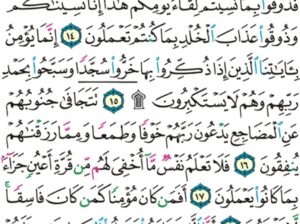 فَذُوقُوا۟ بِمَا نَسِيتُمْ لِقَآءَ يَوْمِكُمْ هَـٰذَآ إِنَّا نَسِينَـٰكُمْ
وَذُوقُوا۟ عَذَابَ ٱلْخُلْدِ بِمَا كُنتُمْ تَعْمَلُونَ ١٤ إِنَّمَا يُؤْمِنُ
بِـَٔايَـٰتِنَا ٱلَّذِينَ إِذَا ذُكِّرُوا۟ بِهَا خَرُّوا۟ سُجَّدًا وَسَبَّحُوا۟ بِحَمْدِ
رَبِّهِمْ وَهُمْ لَا يَسْتَكْبِرُونَ ۩ ١٥ تَتَجَافَىٰ جُنُوبُهُمْ
عَنِ ٱلْمَضَاجِعِ يَدْعُونَ رَبَّهُمْ خَوْفًا وَطَمَعًا وَمِمَّا رَزَقْنَـٰهُمْ
يُنفِقُونَ ١٦ فَلَا تَعْلَمُ نَفْسٌ مَّآ أُخْفِىَ لَهُم مِّن قُرَّةِ أَعْيُنٍ جَزَآءًۢ
بِمَا كَانُوا۟ يَعْمَلُونَ ١٧ أَفَمَن كَانَ مُؤْمِنًا كَمَن كَانَ فَاسِقًا ۚ